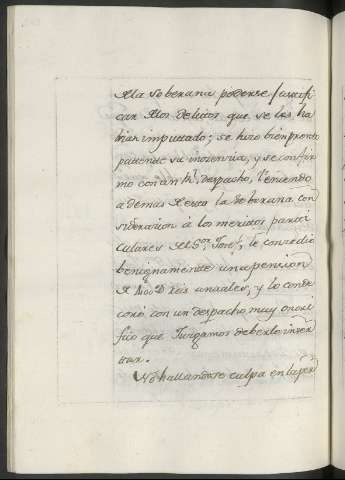 Alla Soberana poderse justifi
car Alos delitos que se les ha
bian imputtado; se hizo bien pronto
pattente su inocencia, y se confir
mo con un Rl. despacho, teniendo
ademas Aesto la Soberana con
sideracion à los meritos parti
culares Al Sor.
benignamente una pension
A 400 D. Rxs anuales, y lo conde
coró con un despacho muy onori
fico que Juzgamos deberlo inser
ttar.
No hallandose culpa en la per